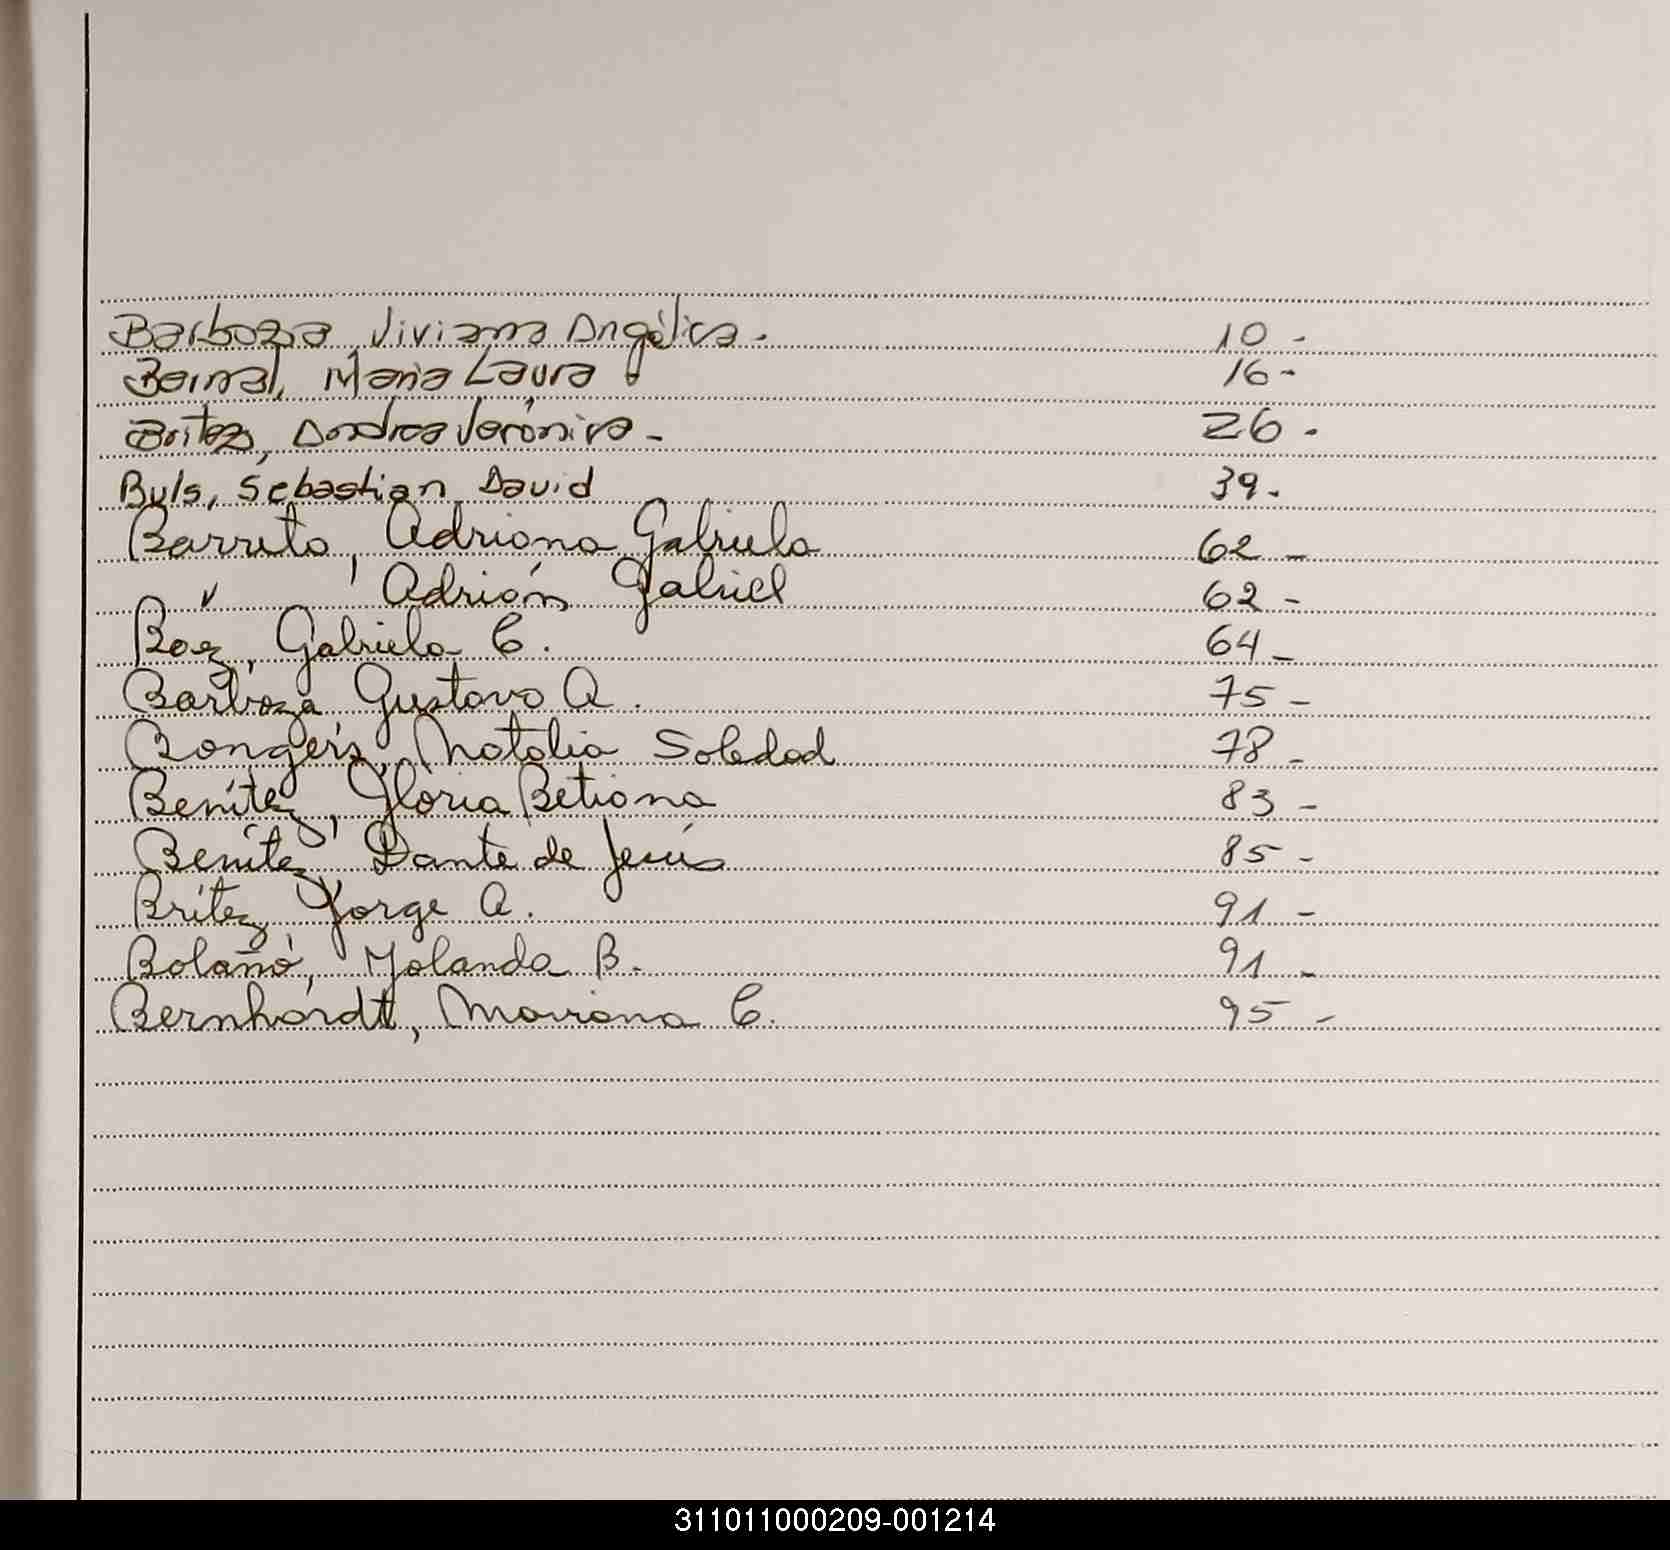 Barboza, Viviana Angélica. 10-
Bernal, María Laura 16-
Britez, Andrea Verónica- 26.
Buls, Sebastian David 39.
Barreto, Adriana Gabriela 62-
" , Adrián Gabriel 62-
Boez, Gabriela C. 64-
Barboza, Gustavo A. 75-
Bongers, Natalia Soledad 78-
Benítez, Gloria Betiana 83-
Benítez, Dante de Jesús 85-
Britez, Jorge A. 91-
Bolaño, Yolanda B. 91-
Bernhardt, Mariana C. 95-
311011000209-001214